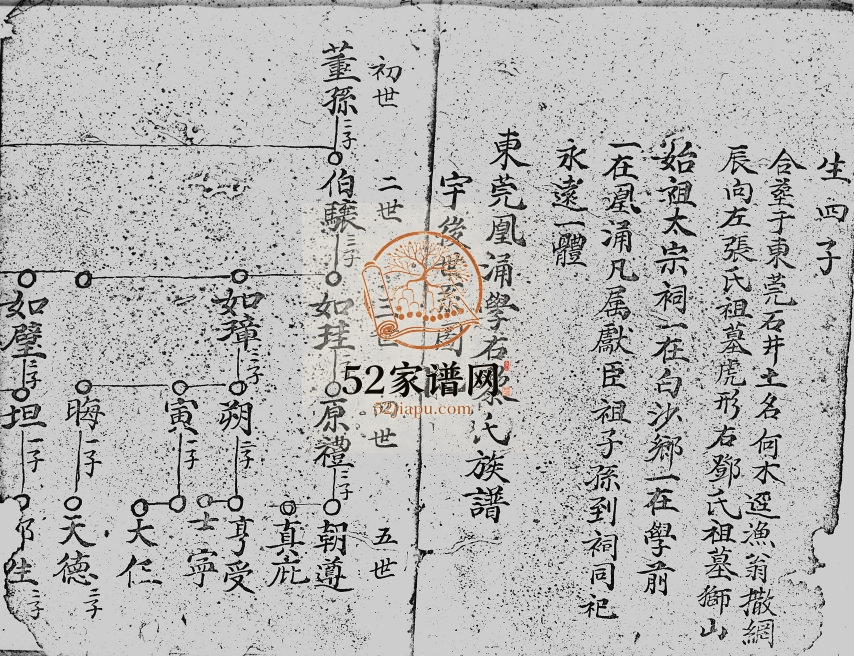 生四子
合塟于東莞石井土名何木逕漁翁撒網
辰向左張氏祖墓虎形右鄧氏祖墓獅山
始祖太宗祠一在白沙鄉一在學前
一在鳳涌凡属獻臣祖子孫到祠同祀
永遠一體
東莞鳳涌學右 氏族譜
宇後世系圖
初世
二世
三世
世
五世
董孫 二子
伯驥 三子
如珪 二子
原禮 二子
朝遵
真庇
如璋 二子
朔 二子
亨受
士寧
寅 一子
大仁
晦 一子
天德 二子
如璧 二子
坦 一子
二子
52家谱网
52jiapu.com